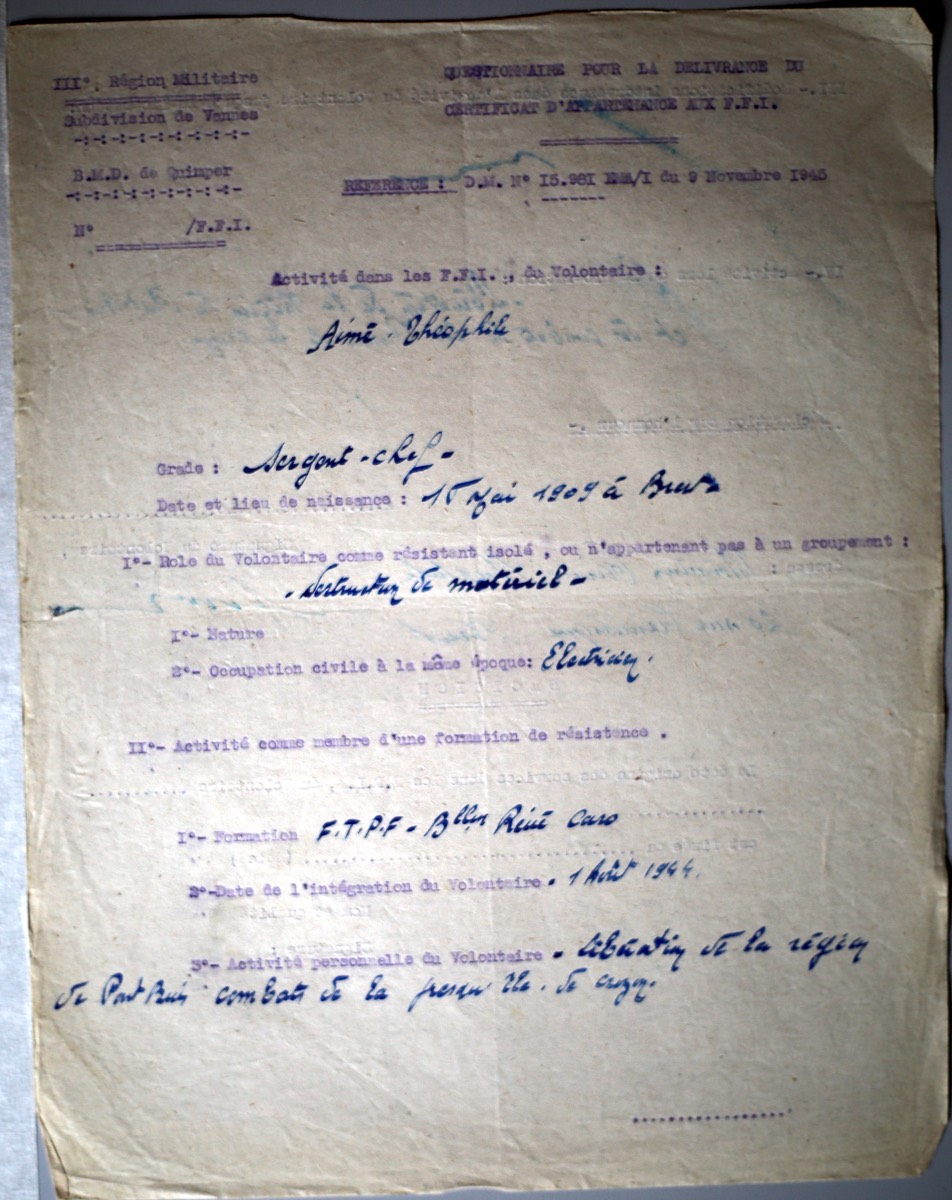 III°. Région Militaire
Subdivision de Vannes
-:-:-:-:-:-:-:-:-:-
B.M.D. de Quimper
-:-:-:-:-:-:-:-:-:-
N° /F.F.I.
QUESTIONNAIRE POUR LA DELIVRANCE DU
CERTIFICAT D'APPARTENANCE AUX F.F.I.
REFERENCE : D.M. N° 15.981 EMA/I du 9 Novembre 1945
-------
Activité dans les F.F.I., du Volontaire :
Aimé - Théophile
Grade : Sergent-chef -
Date et lieu de naissance : 15 Mai 1909 à Brest
I°- Role du Volontaire comme résistant isolé, ou n'appartenant pas à un groupement :
- Destruction de matériel -
I°- Nature
2°- Occupation civile à la même époque: Electricien.
II°- Activité comme membre d'une formation de résistance.
I°- Formation F.T.P.F - Bllon René Caro
2°-Date de l'intégration du Volontaire - 1 Août 1944.
3°- Activité personnelle du Volontaire - Libération de la région
de combats de la presqu'île de crozon.